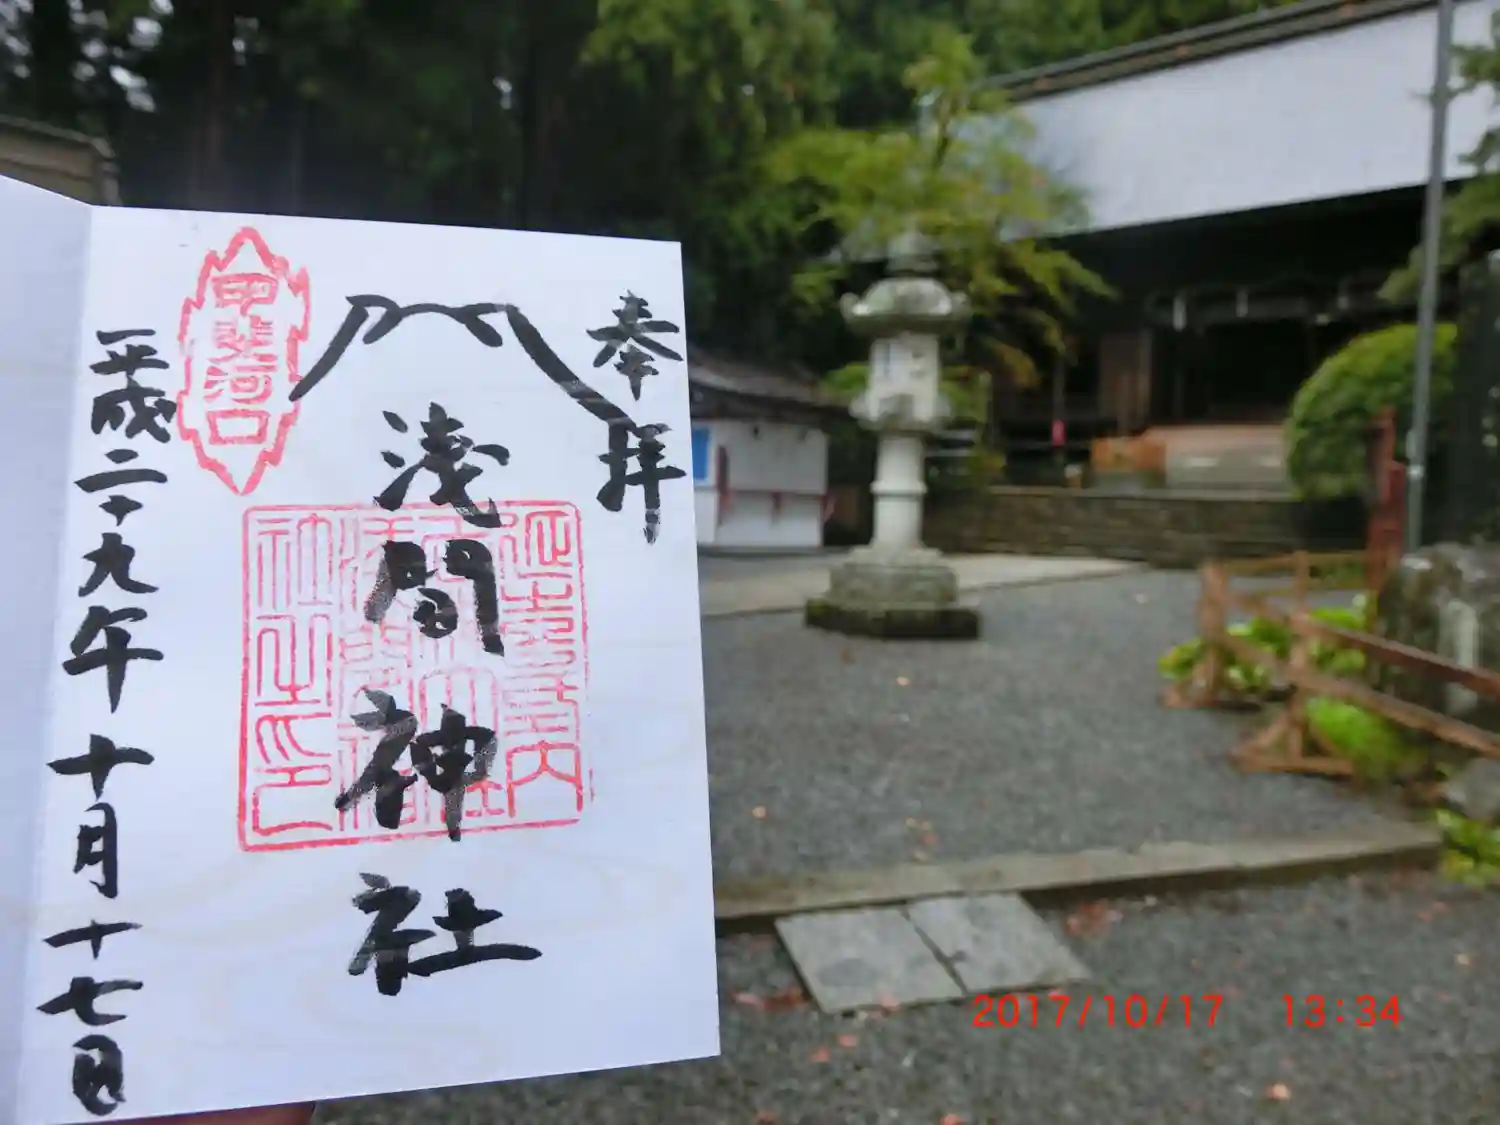 奉拝
淺間神社
甲斐河口
延喜式内
社之印
平成二十九年十月十七日
2017/10/17 13:34